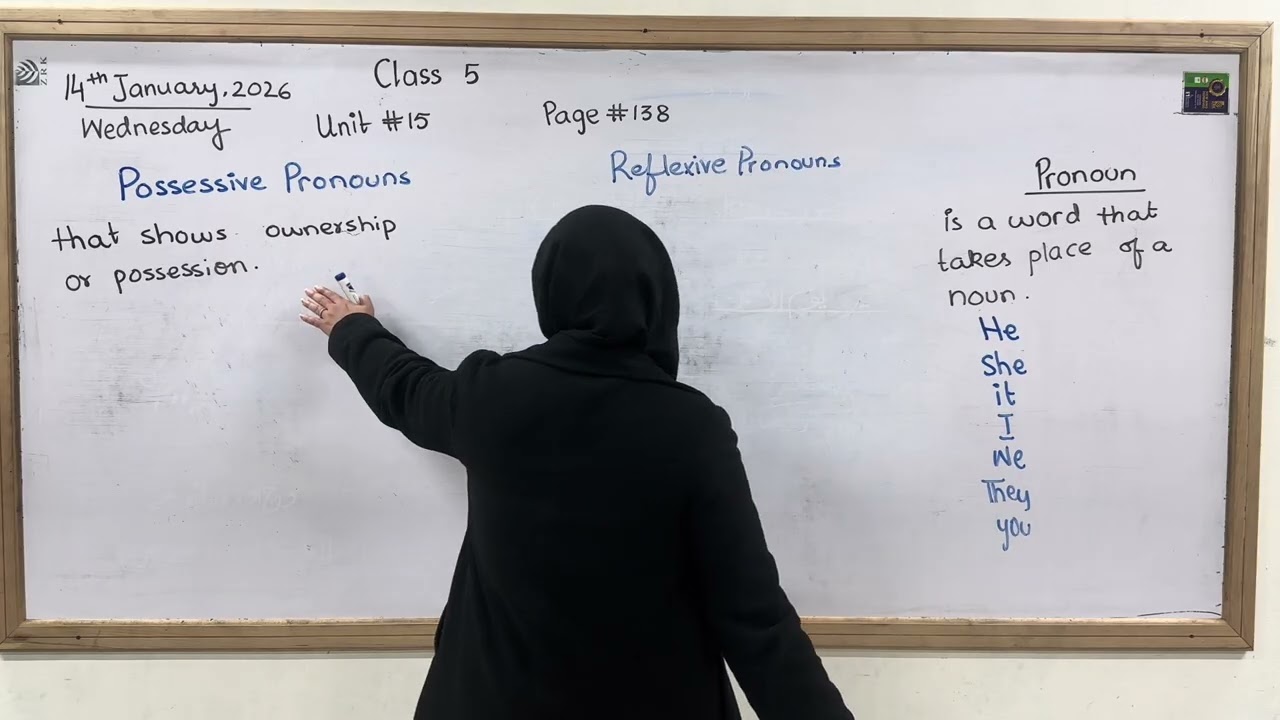 ZRK
14th January, 2026
Class 5
Wednesday
Unit #15
Page #138
Possessive Pronouns
that shows ownership
or possession.
Reflexive Pronouns
Pronoun
is a word that
takes place of a
noun.
He
She
it
I
We
They
you